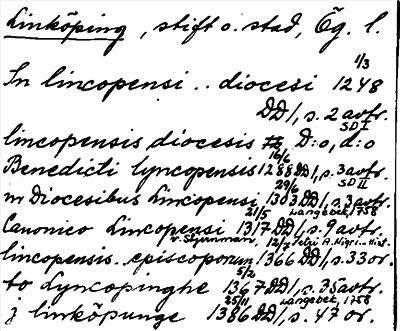 Linköping, stift o. stad, Ög. l.
1/3
In lincopensi .. diocesi 1248
DD1, s. 2 avtr.
SD I
lincopensis diocesis fb, D:o, d:o
16/6
Benedicti lyncopensis 1288 DD1, s. 3 avtr.
29/6 SD II
in Diocesibus Lincopensi 1303 DD1, s. 3 avtr.
21/5 Langebek, 1758
Canonico Lincopensi 1317 DD1, s. 9 avtr.
v. Stjernman, 12/7 Petri A. Nigri.. Hist.
lincopensis . episcoporum 1366 DD1, s. 33 or.
5/2
to Lyncopinghe 1367 DD1, s. 35 avtr.
25/11 Langebek, 1758
j linköpunge 1386 DD1, s. 47 or.